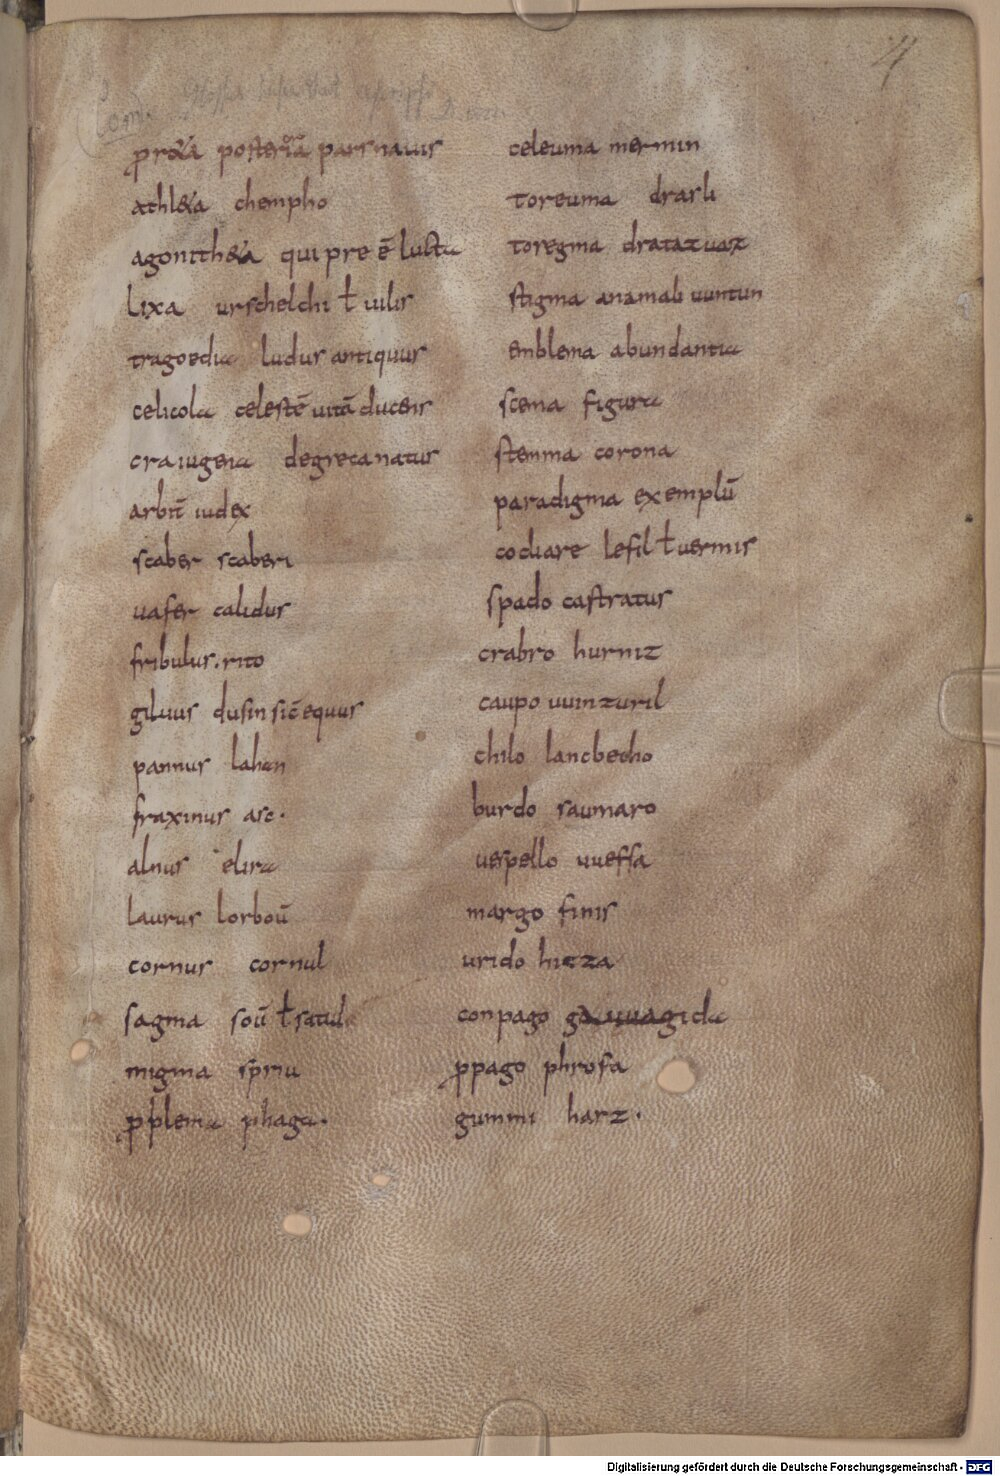 4
proręta posteriora pars nauis
athleta chempho
agonitheta qui pre ē luctu
lixa urschelchi ƚ uilis
tragoedia ludus antiquus
celicola celestē uitā ducens
craiugena degreca natus
arbit̄ iudex
scaber scaberi
uafer calidus
fribulus. rito
giluus dusin sic̄ equus
pannus lahan
fraxinus asc.
alnus elira
laurus lorboū
cornus cornul
sagma soū ƚ satul
migma sp̄riu
ꝓblema phaga.
celeuma mermin
toreuma drarli
toregma dratazuaz
stigma anamali uuntun
emblema abundantia
scema figura
stemma corona
paradigma exemplū
cocliare lefil ƚ uermis
spado castratus
crabro hurniz
caupo uuinzuril
chilo lancbecho
burdo saumaro
uespello uueffa
margo finis
urido hizza
conpago gauuagida
ꝓpago phrofa
gummi harz.
Digitalisierung gefördert durch die Deutsche Forschungsgemeinschaft - DFG